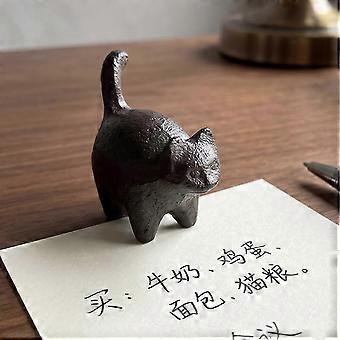 买：牛奶、鸡蛋、
面包、猫粮。
会议